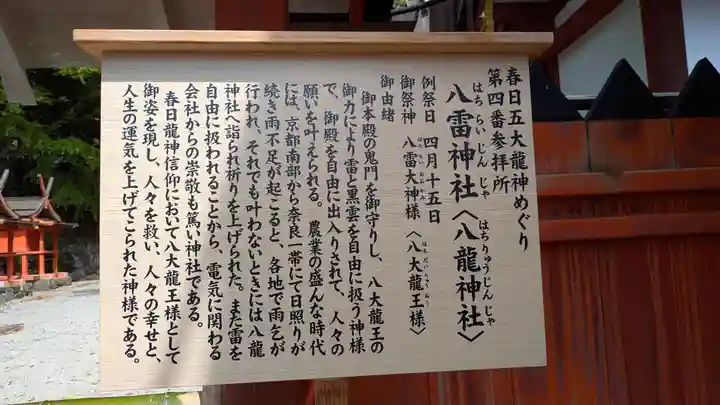 春日五大龍神めぐり
第四番参拝所
八雷神社〈八龍神社〉
はち らい じん じゃ はちりゅうじん じゃ
例祭日 四月十五日
御祭神 八雷大神様〈八大龍王様〉
御由緒
御本殿の鬼門を御守りし、八大龍王の
御力により雷と黒雲を自由に扱う神様
で、御殿を自由に出入りされて、人々の
願いを叶えられる。 農業の盛んな時代
には、京都南部から奈良一帯にて日照りが
続き雨不足が起こると、各地で雨乞が
行われ、それでも叶わないときには八龍
神社へ詣られ祈りを上げられた。また雷を
自由に扱われることから、電気に関わる
会社からの崇敬も篤い神社である。
春日龍神信仰において八大龍王様として
御姿を現し、人々を救い、人々の幸せと、
人生の運気を上げてこられた神様である。